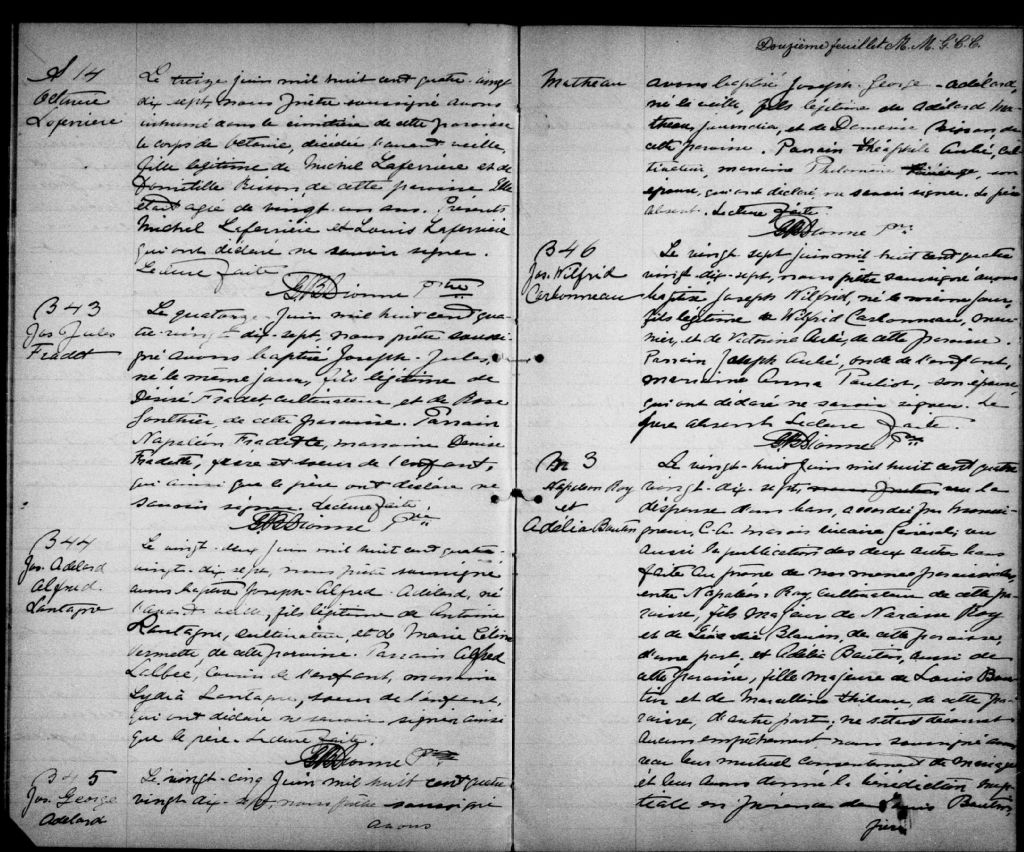 S 14
Octavie
Laferriere
Le treize juin mil huit cent quatre-vingt
dix sept, nous prêtre soussigné avons
inhumé dans le cimetière de cette paroisse
le corps de Octavie, décédée l'avant veille,
fille légitime de Michel Laferrière et de
Domitille Buson, de cette paroisse. Elle
était agée de vingt-un ans. Présents
Michel Laferrière et Louis Laferrière
qui ont déclaré ne savoir signer.
Lecture faite.
Dionne Ptre
B 43
Jos Jules
Fradet
Le quatorze juin mil huit cent qua-
tre-vingt dix-sept, nous prêtre soussi-
gné avons baptisé Joseph-Jules,
né le même jour, fils légitime de
Désiré Fradet, cultivateur, et de Rose
Gonthier, de cette paroisse. Parrain
Napoléon Fradette, marraine
Fradette, frère et soeur de l'enfant,
qui ainsi que le père ont déclaré ne
savoir signer. Lecture faite.
Dionne Ptre
B 44
Jos. Adelard
Alfred
Lantagne
Le vingt-deux juin mil huit cent quatre-
vingt-dix sept, nous prêtre soussigné
avons baptisé Joseph-Alfred-Adelard, né
l'avant veille, fils légitime de Antoine
Lantagne, cultivateur, et de Marie
Vermette, de cette paroisse. Parrain Alfred
Labbée, cousin de l'enfant, marraine
Lydia Lantagne, soeur de l'enfant,
qui ont déclaré ne savoir signer ainsi
que le père. Lecture faite.
Dionne Ptre
B 45
Jos. George
Adelard
Le vingt-cinq juin mil huit cent quatre
vingt dix-sept, nous prêtre soussigné
avons
Douzième feuillet M. M. G. C. C.
Matheau
avons baptisé Joseph-George-Adélard,
né la veille, fils légitime de Adélard Ma-
theau, journalier, et de Buson, de
cette paroisse. Parrain Théophile Aubé, cul-
tivateur, marraine Philomène son
épouse, qui ont déclaré ne savoir signer. Le père
absent. Lecture faite.
Dionne Ptre
B 46
Jos. Wilfrid
Carbonneau
Le vingt sept juin mil huit cent quatre
vingt-dix-sept, nous prêtre soussigné avons
baptisé Joseph Wilfrid, né le même jour,
fils légitime de Wilfrid Carbonneau, meu-
nier, et de Victorine Aubé, de cette paroisse.
Parrain Joseph Aubé, oncle de l'enfant,
marraine Anna Pouliot, son épouse
qui ont déclaré ne savoir signer. Le
père absent. Lecture faite.
Dionne Ptre
M 3
Napoléon Roy
et
Adélia Boutin
Le vingt-huit juin mil huit cent quatre
vingt-dix-sept, nous prêtre vu la
dispense d'un ban, accordée par Monsei-
gneur C. A. Marois vicaire général; vu
aussi la publication des deux autres bans
faite au prône de nos messes paroissiales,
entre Napoléon Roy, cultivateur, de cette pa-
roisse, fils majeur de Narcisse Roy
et de Blouin, de cette paroisse,
d'une part, et Adélia Boutin, aussi de
cette paroisse, fille majeure de Louis Bou-
tin et de Marcelline Thibeau, de cette pa-
roisse, d'autre part; ne s'étant découvert
aucun empêchement nous soussigné avons
reçu leur mutuel consentement de mariage
et leur avons donné la bénédiction nup-
tiale en présence de Louis Boutin,
père